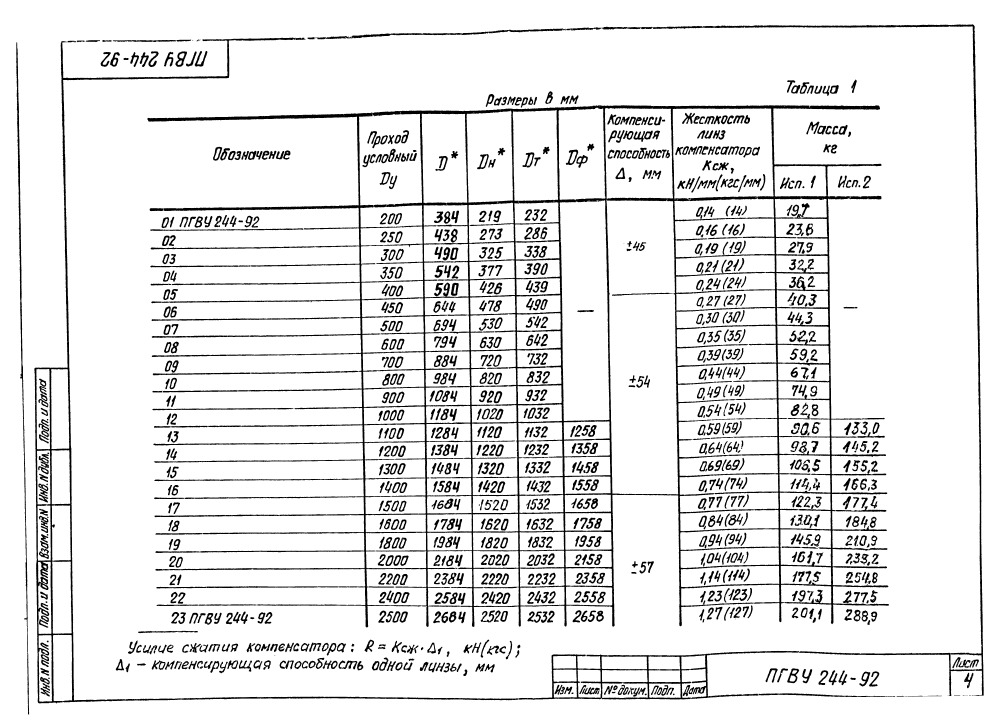 ПГВУ 244-92
Таблица 1
Размеры в мм
Обозначение | Проход условный Dу | D* | Dн* | Dт* | Dф* | Компенси-рующая способность Δ, мм | Жесткость линз компенсатора Ксж, кН/мм(кгс/мм) | Масса, кг Исп. 1 | Исп. 2
01 ПГВУ 244-92 | 200 | 384 | 219 | 232 | — | ±45 | 0,14 (14) | 19,7 | —
02 | 250 | 438 | 273 | 286 | 0,16 (16) | 23,6
03 | 300 | 490 | 325 | 338 | 0,19 (19) | 27,9
04 | 350 | 542 | 377 | 390 | 0,21 (21) | 32,2
05 | 400 | 590 | 426 | 439 | 0,24 (24) | 36,2
06 | 450 | 644 | 478 | 490 | ±54 | 0,27 (27) | 40,3
07 | 500 | 694 | 530 | 542 | 0,30 (30) | 44,3
08 | 600 | 794 | 630 | 642 | 0,35 (35) | 52,2
09 | 700 | 884 | 720 | 732 | 0,39(39) | 59,2
10 | 800 | 984 | 820 | 832 | 0,44(44) | 67,1
11 | 900 | 1084 | 920 | 932 | 0,49 (49) | 74,9
12 | 1000 | 1184 | 1020 | 1032 | 0,54 (54) | 82,8
13 | 1100 | 1284 | 1120 | 1132 | 1258 | 0,59(59) | 90,6 | 133,0
14 | 1200 | 1384 | 1220 | 1232 | 1358 | 0,64(64) | 98,7 | 145,2
15 | 1300 | 1484 | 1320 | 1332 | 1458 | 0,69(69) | 106,5 | 155,2
16 | 1400 | 1584 | 1420 | 1432 | 1558 | 0,74(74) | 114,4 | 166,3
17 | 1500 | 1684 | 1520 | 1532 | 1658 | ±57 | 0,77(77) | 122,3 | 177,4
18 | 1600 | 1784 | 1620 | 1632 | 1758 | 0,84(84) | 130,1 | 184,8
19 | 1800 | 1984 | 1820 | 1832 | 1958 | 0,94(94) | 145,9 | 210,9
20 | 2000 | 2184 | 2020 | 2032 | 2158 | 1,04(104) | 161,7 | 233,2
21 | 2200 | 2384 | 2220 | 2232 | 2358 | 1,14(114) | 177,5 | 254,8
22 | 2400 | 2584 | 2420 | 2432 | 2558 | 1,23(123) | 197,3 | 277,5
23 ПГВУ 244-92 | 2500 | 2684 | 2520 | 2532 | 2658 | 1,27(127) | 201,1 | 288,9
Усилие сжатия компенсатора: R = Ксж·Δ1, кН(кгс);
Δ1 – компенсирующая способность одной линзы, мм
Инв.N подл. | Подп. и дата | Взам.инв.N | Инв.N дубл. | Подп. и дата
Изм. | Лист | № докум. | Подп. | Дата
ПГВУ 244-92
Лист
4